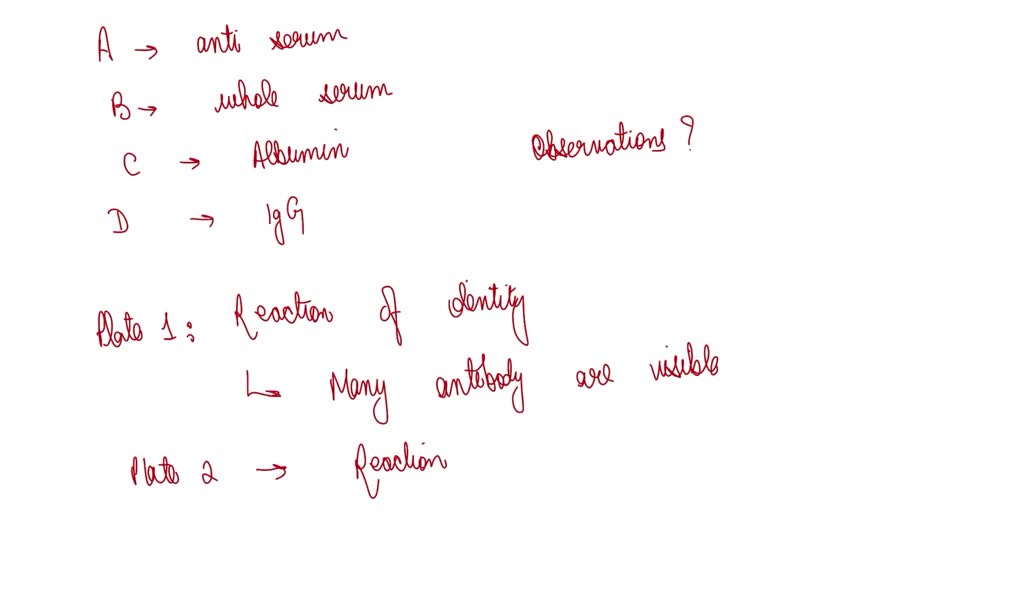 A → anti serum
B → whole serum
C → Albumin
Observations ?
D → IgG
Plate 1: Reaction of identity
↳ Many antibody are visible
Plate 2 → Reaction